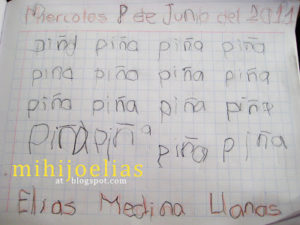 Miercoles 8 de Junio del 2011
piña piña piña piña
pina piña piña piña
piña piña piña piña
piña piña piña piña
mihijoelias
at blogspot.com
Elias Medina Llanos